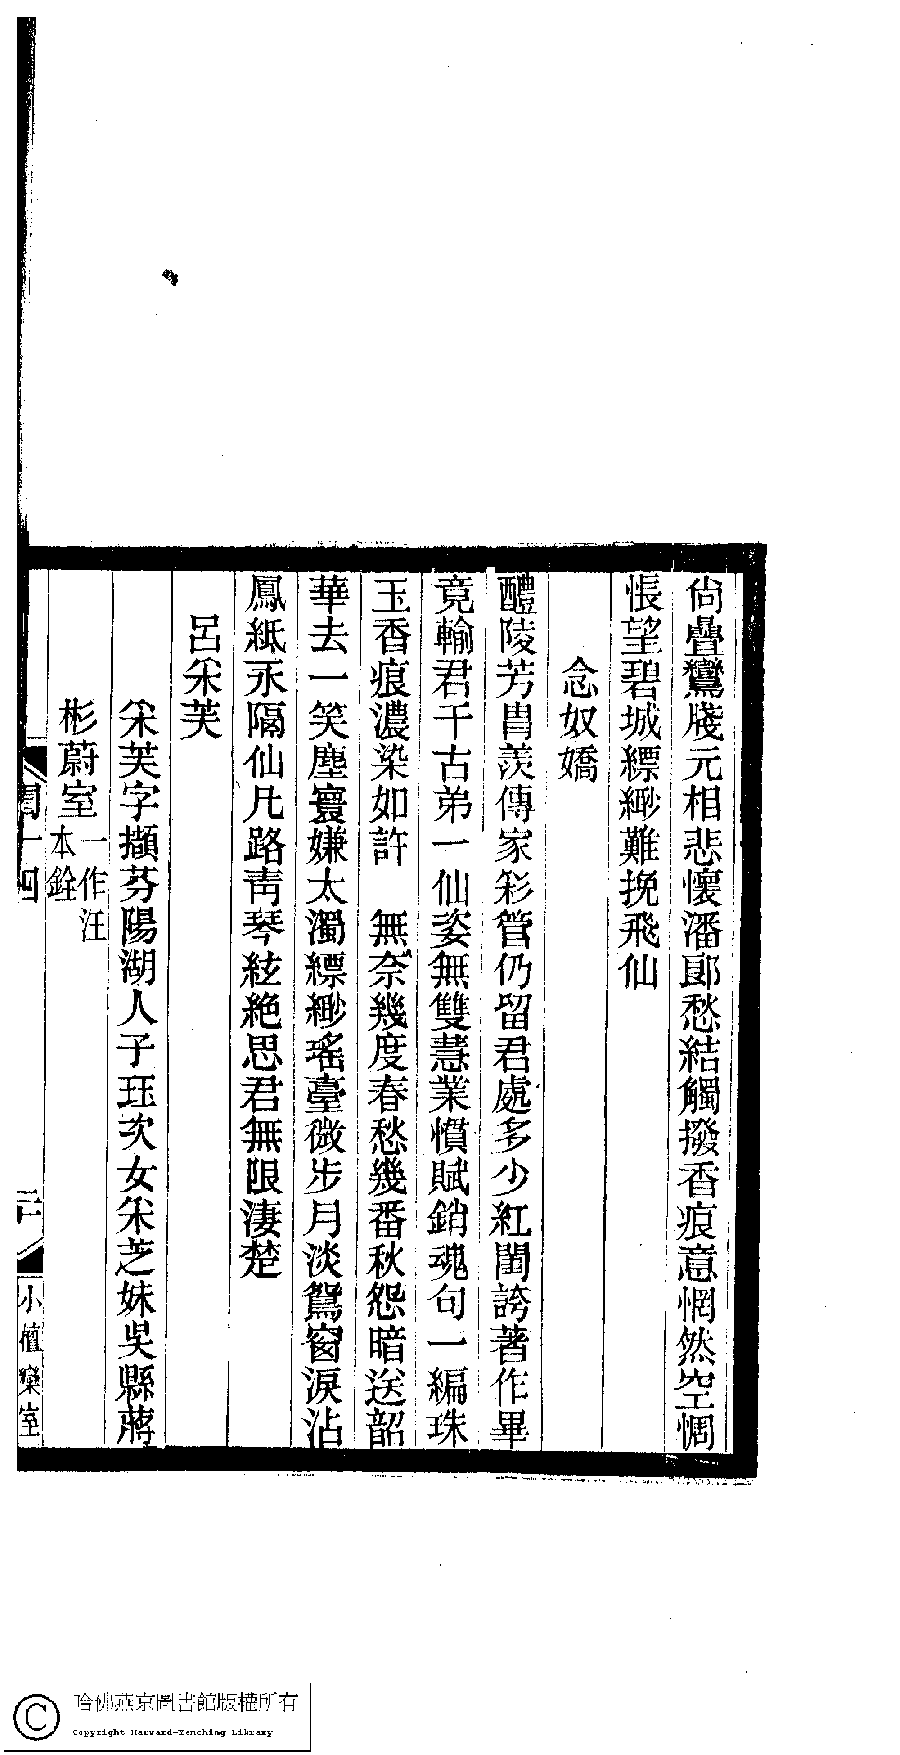 尙疊鸞牋元相悲懷潘郞愁結觸撥香痕意惘然空惆
悵望碧城縹緲難挽飛仙
念奴嬌
醴陵芳胄羨傳家彩管仍留君處多少紅閨誇著作畢
竟輸君千古弟一仙姿無雙慧業慣賦銷魂句一編珠
玉香痕濃染如許　無奈幾度春愁幾番秋怨暗送韶
華去一笑塵寰嫌太濁縹緲瑤臺微步月淡鴛窗淚沾
鳳紙永隔仙凡路靑琴絃絶思君無限淒楚
呂采芙
采芙字擷芬陽湖人子珏次女采芝妹吳縣蔣
彬蔚室一作汪
本銓
閨十四
二
小檀欒室
哈佛燕京圖書館版權所有
Copyright Harvard-Yenching Library